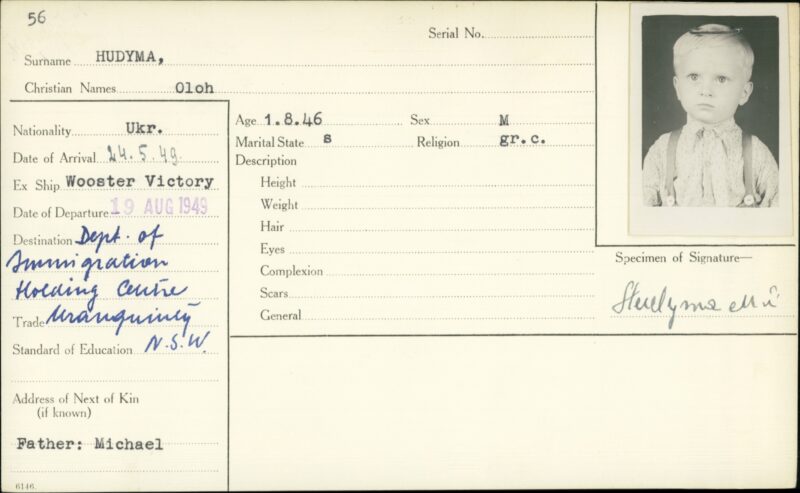 56
Serial No.
Surname HUDYMA,
Christian Names Oloh
Nationality Ukr.
Date of Arrival 24.5.49.
Ex Ship Wooster Victory
Date of Departure 19 AUG 1949
Destination Dept. of
Immigration
Holding Centre
Trade Uranquinty
Standard of Education N.S.W.
Address of Next of Kin
(if known)
Father: Michael
6146.
Age 1.8.46 Sex M
Marital State s Religion gr.c.
Description
Height
Weight
Hair
Eyes
Complexion
Scars
General
Specimen of Signature—
Hudyma